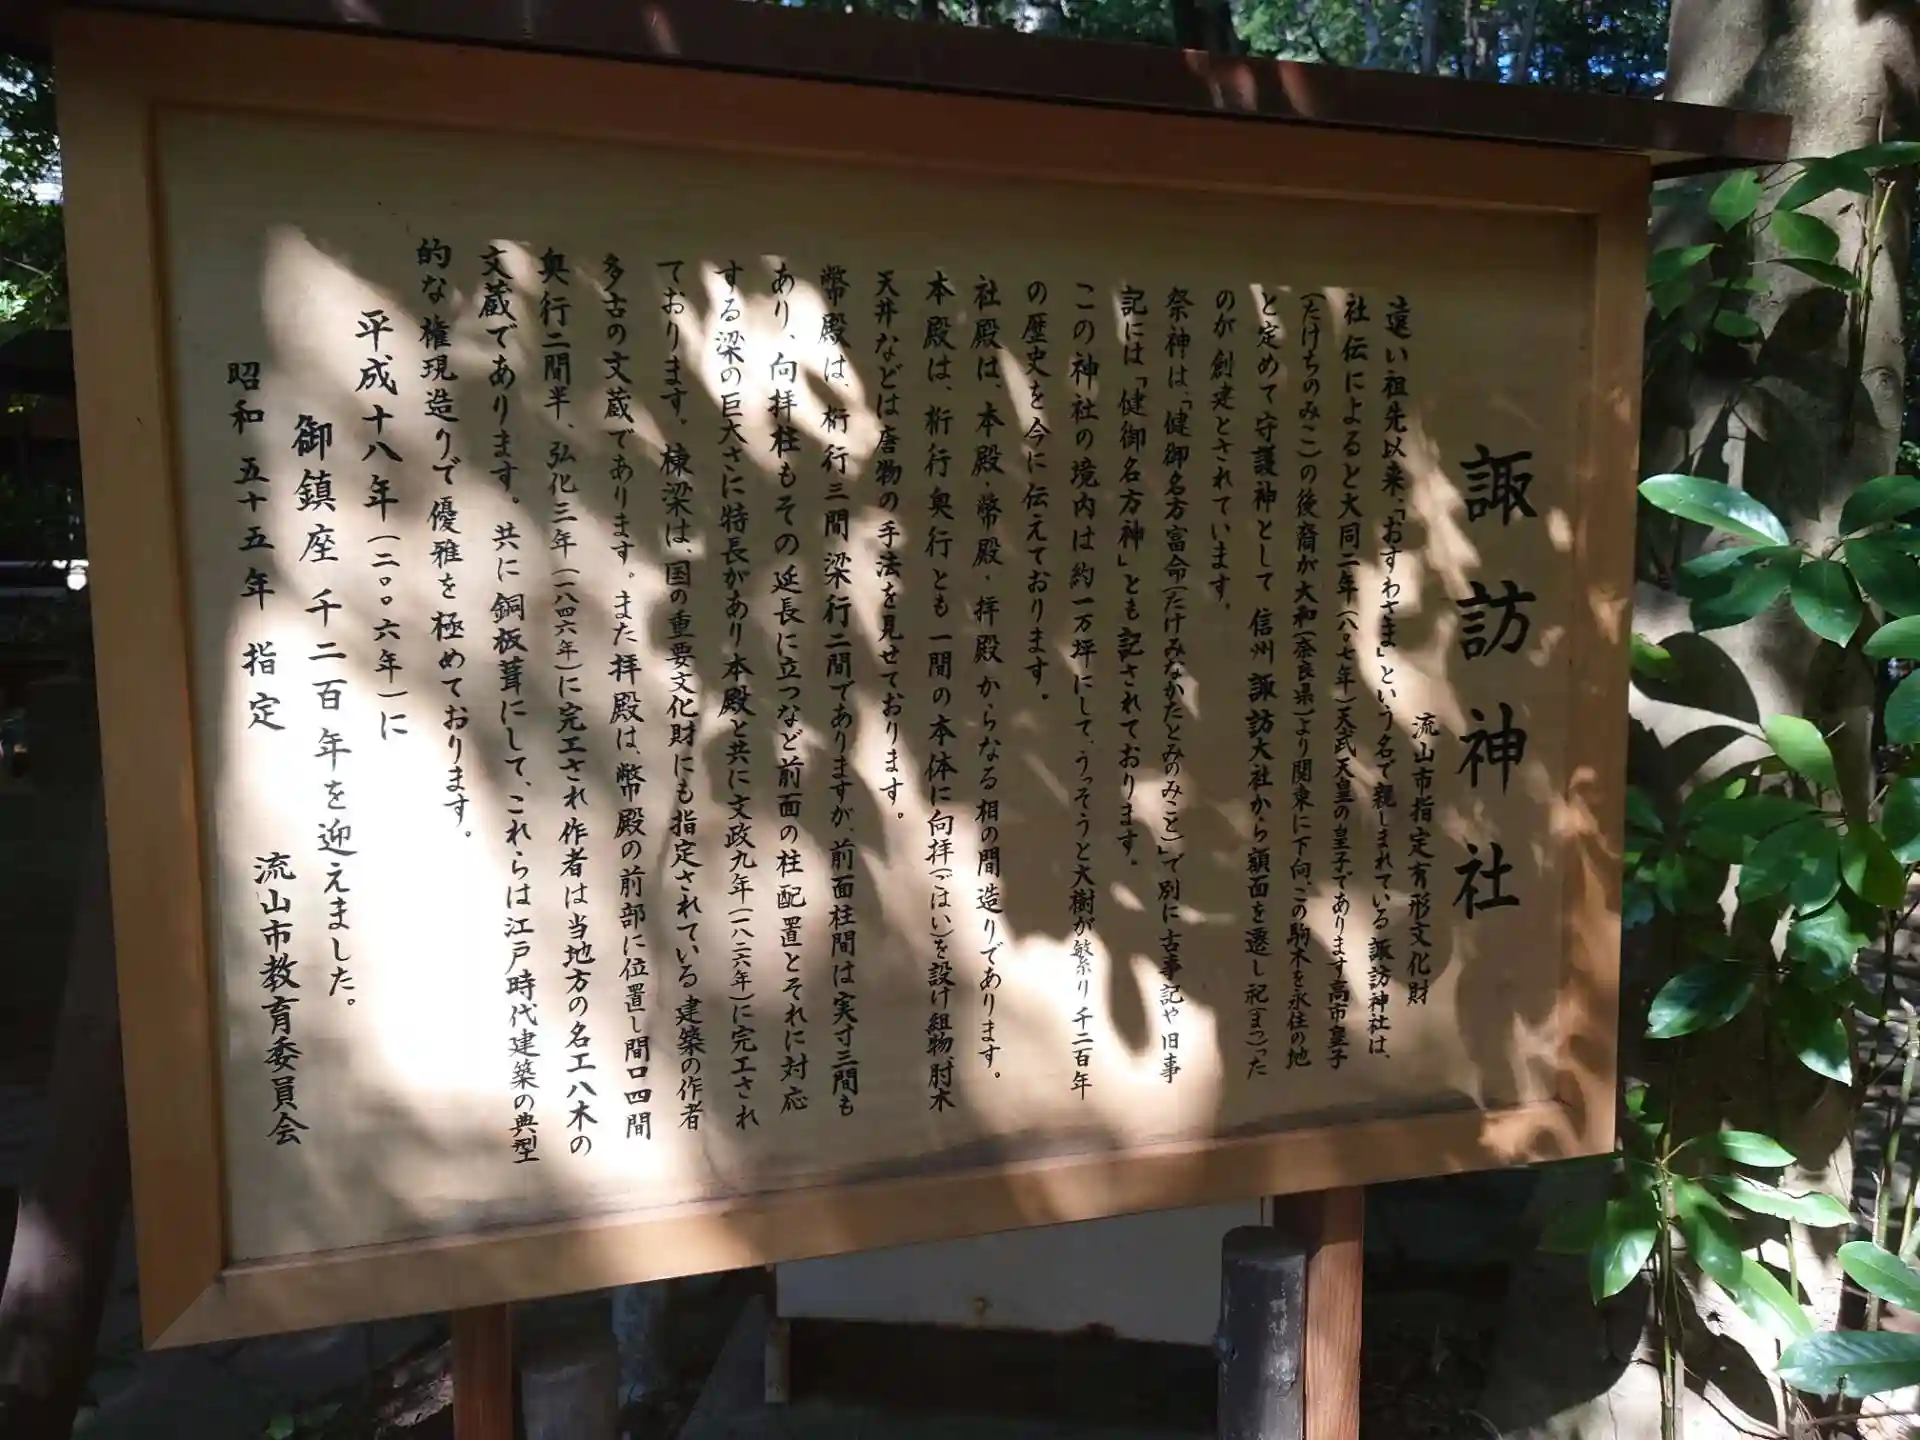 諏訪神社
流山市指定有形文化財
遠い祖先以来、「おすわさま」という名で親しまれている諏訪神社は、
社伝によると大同二年(八〇七年)天武天皇の皇子であります高市皇子
(たけちのみこ)の後裔が大和(奈良県)より関東に下向、この駒木を永住の地
と定めて守護神として信州諏訪大社から額面を遷し祀(まつ)った
のが創建とされています。
祭神は、「健御名方富命(たけみなかたとみのみこと)」で別に古事記や旧事
記には「健御名方神」とも記されております。
この神社の境内は約一万坪にして、うっそうと大樹が繁り千二百年
の歴史を今に伝えております。
社殿は、本殿・幣殿・拝殿からなる相の間造りであります。
本殿は、桁行奥行とも一間の本体に向拝(ごはい)を設け組物、肘木
天井などは唐物の手法を見せております。
幣殿は、桁行三間梁行二間でありますが、前面柱間は実寸三間も
あり、向拝柱もその延長に立つなど前面の柱配置とそれに対応
する梁の巨大さに特長があり本殿と共に文政九年(一八二六年)に完工され
ております。棟梁は、国の重要文化財にも指定されている建築の作者
多古の文蔵であります。また拝殿は、幣殿の前部に位置し間口四間
奥行二間半、弘化三年(一八四六年)に完工され作者は当地方の名工八木の
文蔵であります。共に銅板葺にして、これらは江戸時代建築の典型
的な権現造りで優雅を極めております。
平成十八年(二〇〇六年)に
御鎮座千二百年を迎えました。
昭和五十五年 指定 流山市教育委員会